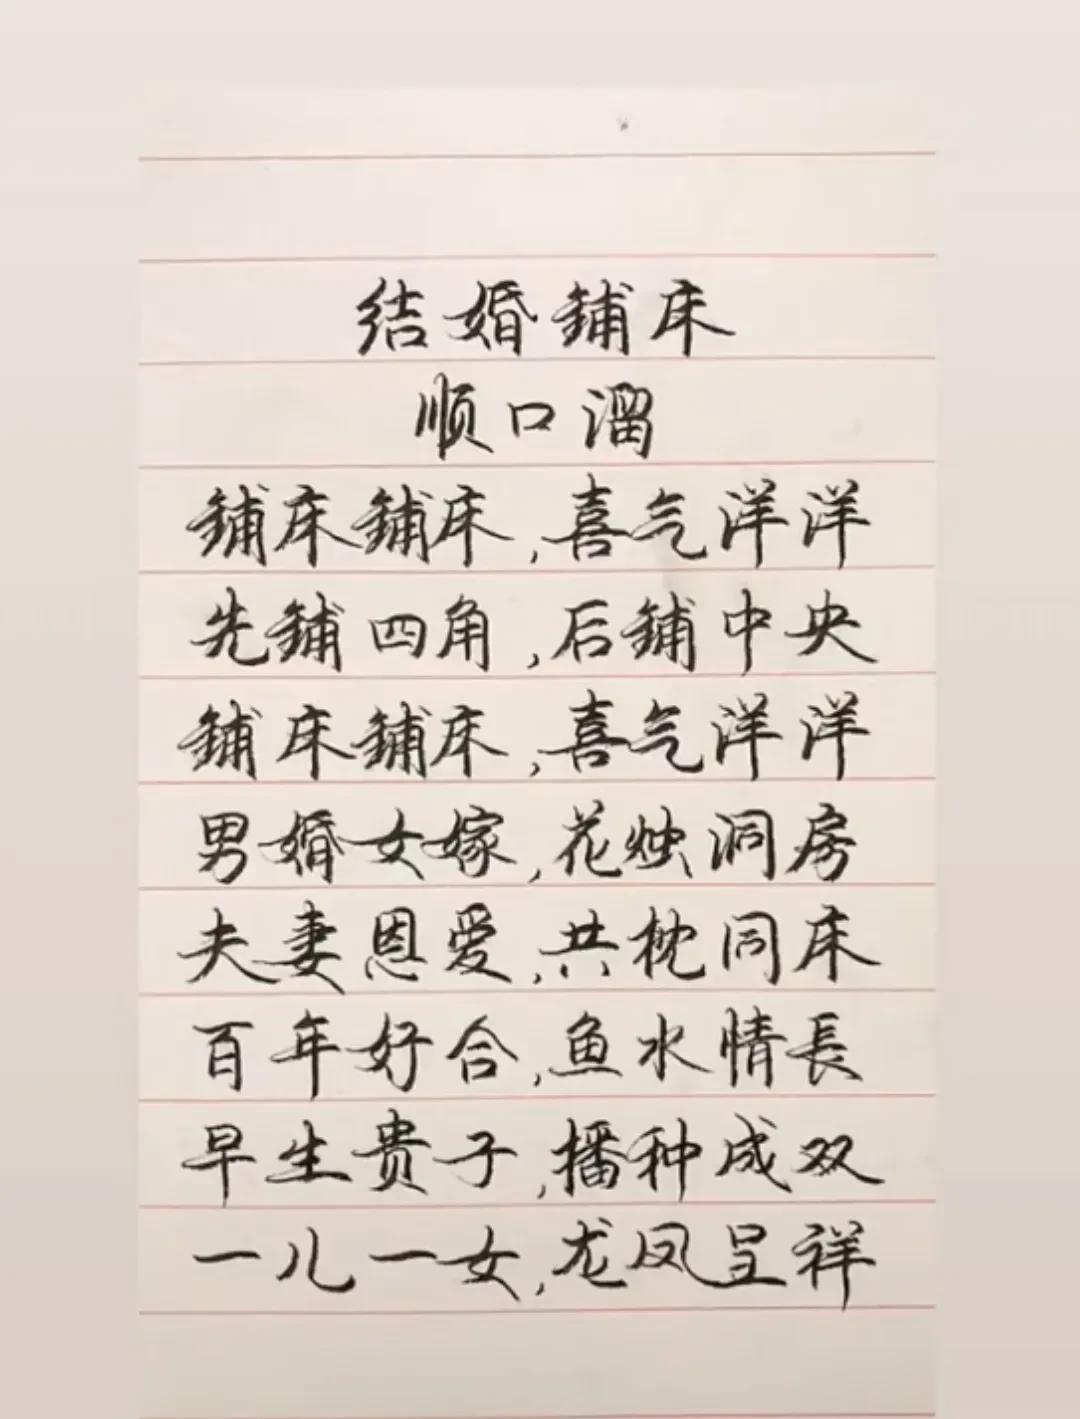 结婚鋪床
顺口溜
鋪床鋪床,喜气洋洋
先鋪四角,后鋪中央
鋪床鋪床,喜气洋洋
男婚女嫁,花烛洞房
夫妻恩爱,共枕同床
百年好合,鱼水情長
早生贵子,播种成双
一儿一女,龙凤呈祥